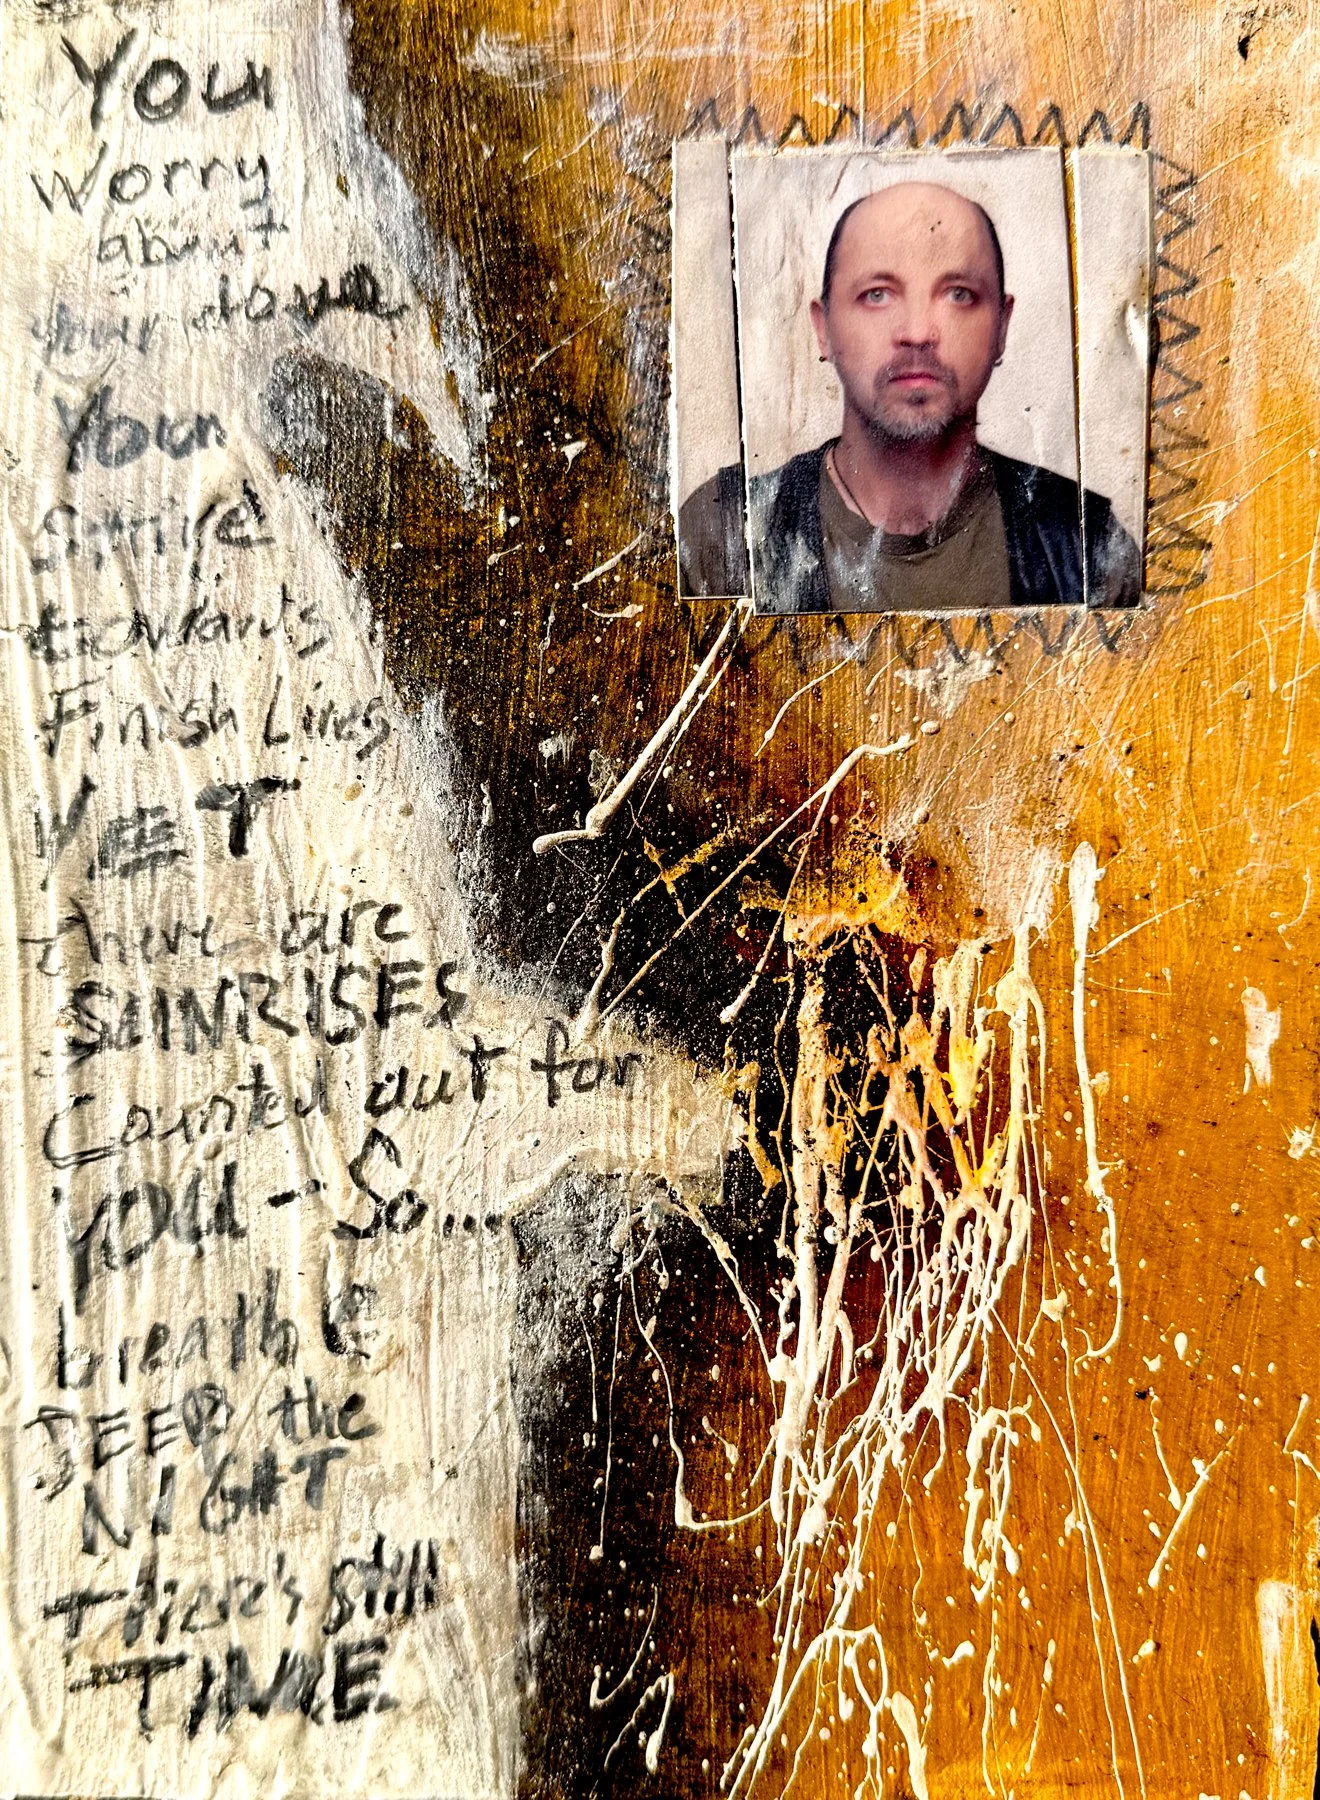 You
Worry
about
your love
Your
towards
Finish Lines
YET
there are
SUNRISES
Counted out for
YOU - So...
breathe
DEEP the
NIGHT
There's still
TIME